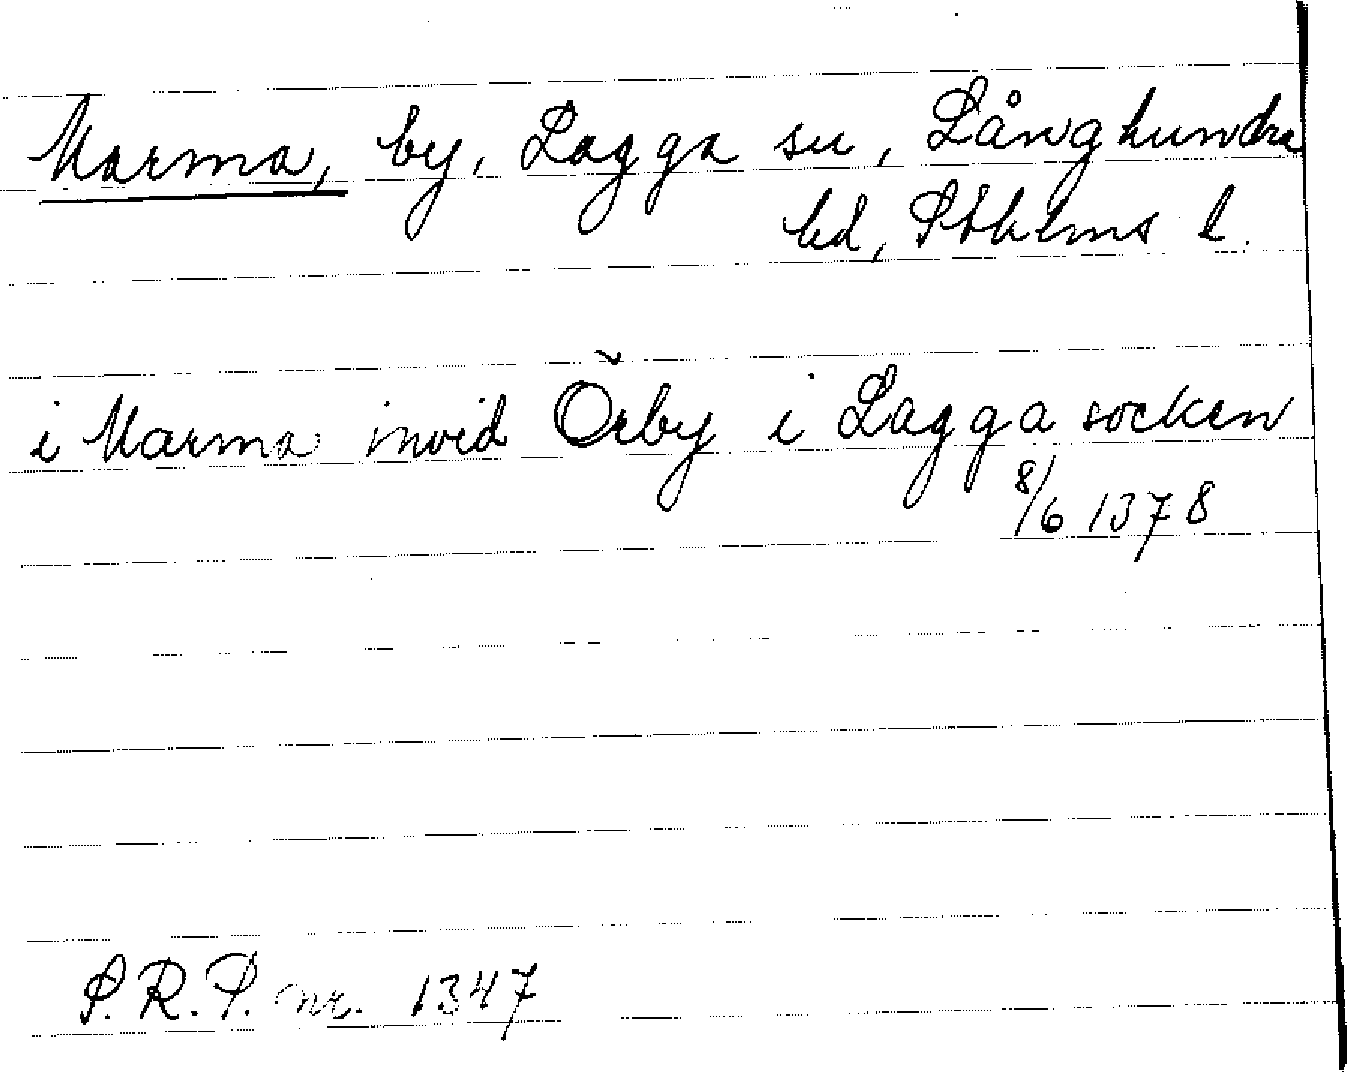 Marma, by, Lagga sn, Långhundra
hd, Sthlms l.
i Marma invid Örby i Lagga socken
8/6 1378
S.R.P. nr. 1347